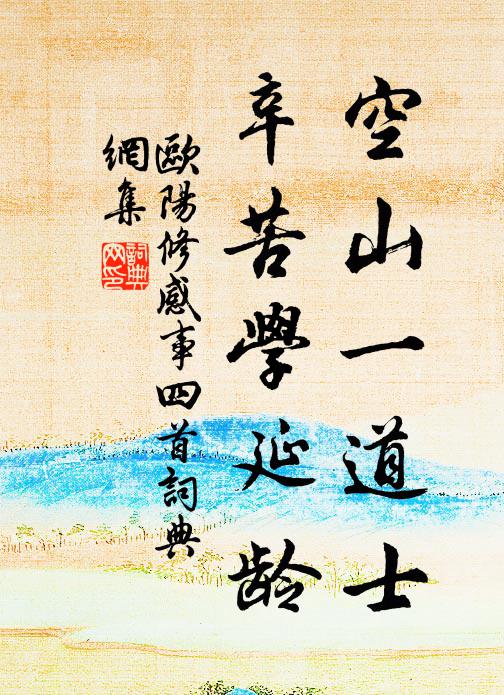 空山一道士
辛苦學延龄
歐陽修感事四首詞典
網集
詞典
网印